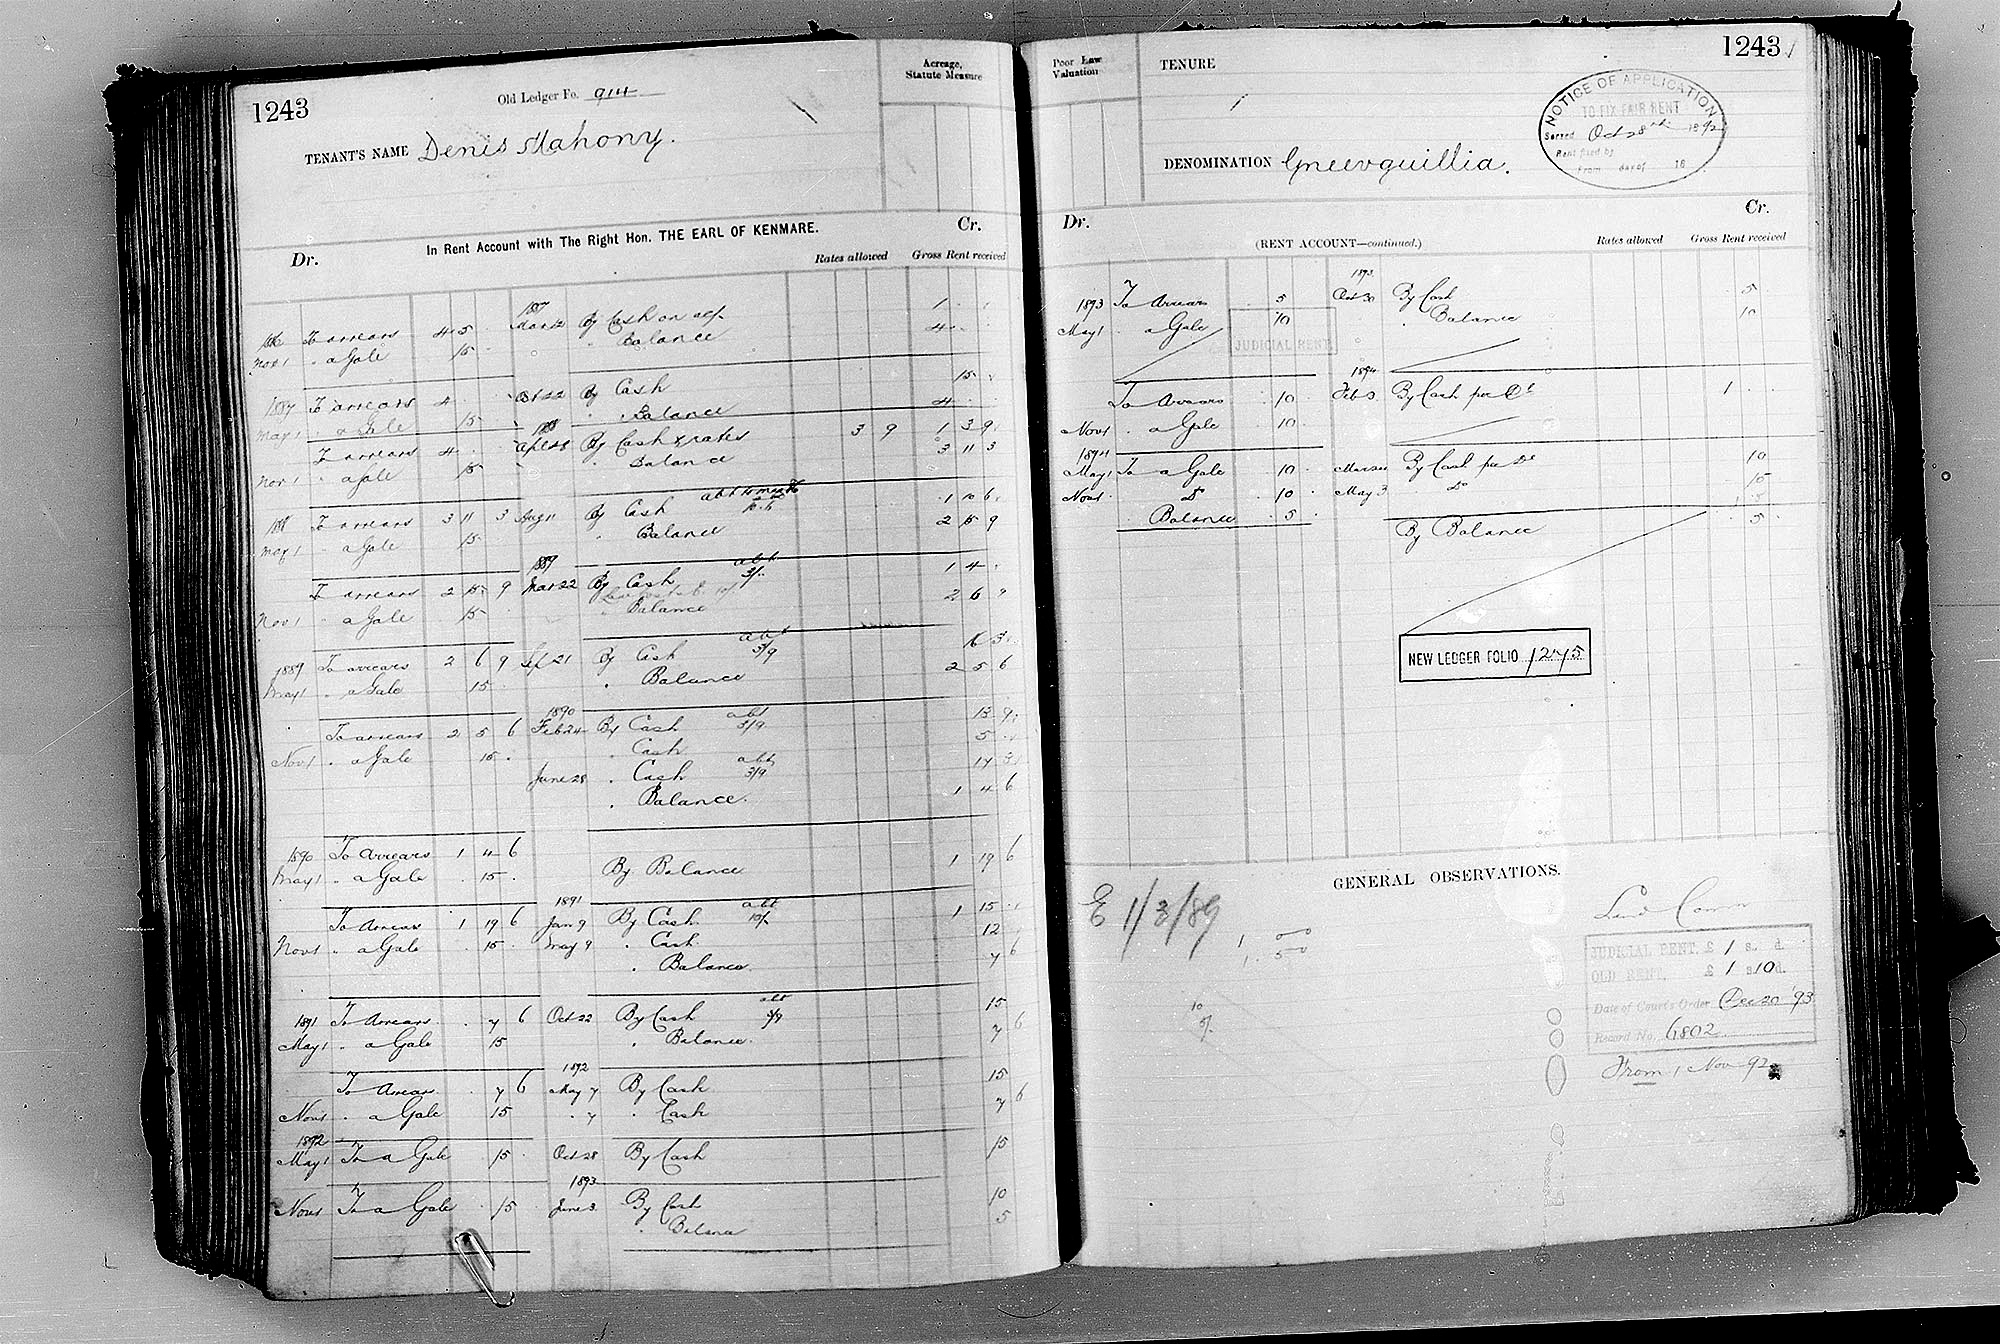 1243
Old Ledger Fo. 914
Acreage,
Statute Measure
TENANT'S NAME Denis Mahony.
In Rent Account with The Right Hon. THE EARL OF KENMARE.
Dr.
Cr.
Rates allowed Gross Rent received
1887
1886 To arrears 4 5 . Mar 12 By Cash on a/c 1 . .
Nov 1 " a Gale 15 . " Balance 4 . .
1887 To arrears 4 . . Oct 22 By Cash 15 .
May 1 " a Gale 15 . " Balance 4 . .
1888
To arrears 4 . . By Cash & rates 3 9 1 3 9
Nov 1 " a Gale 15 " Balance 3 11 3
1888 To arrears 3 11 3 Aug 11 By Cash 1 10 6
May 1 " a Gale 15 . " Balance 2 15 9
1889
To arrears 2 15 9 Mar 22 By Cash abt 3/. 1 4 .
Nov 1 a Gale 15 . " Balance 2 6 9
1889 To arrears 2 6 9 Sep 21 By Cash abt 3/9 16 3
May 1 " a Gale 15 . " Balance 2 5 6
1890
To arrears 2 5 6 Feb 24 By Cash abt 3/9 13 9
Nov 1 " a Gale 15 . Cash 5 .
June 28 " Cash abt 3/9 17 3
" Balance. 1 4 6
1890 To Arrears 1 4 6
May 1 " a Gale 15 . By Balance 1 19 6
1891
To Arrears 1 19 6 Jan 9 By Cash abt 10/- 1 15 .
Nov 1 " a Gale 15 . May 9 " Cash 12 .
" Balance. 7 6
1891 To Arrears . 7 6 Oct 22 By Cash abt 3/9 15
May 1 " a Gale 15 " Balance. 7 6
1892
To Arrears . 7 6 May 7 By Cash 15
Nov 1 " a Gale 15 " 7 " Cash 7 6
1892
May 1 To a Gale 15 . Oct 28 By Cash 15
1893
Nov 1 To a Gale 15 June 3. By Cash 10
" Balance 5
1243
Poor Law
Valuation
TENURE
NOTICE OF APPLICATION
TO FIX FAIR RENT
Served Oct 28th 1892
Rent fixed by
From day of 18
DENOMINATION Gneevguillia.
Dr.
Cr.
(RENT ACCOUNT—continued.)
Rates allowed Gross Rent received
1893
1893 To Arrears 5 Oct 30 By Cash 5
May 1 " a Gale 10 " Balance 10
JUDICIAL RENT.
1894
To Arrears 10 . Feb 3 By Cash per 1 . .
Nov 1 " a Gale 10 .
1894
May 1 To a Gale 10 . By Cash per Do 10
Nov 1 Do 10 . May 3 Do 15
1 5
Balance 5 . By Balance 5 .
NEW LEDGER FOLIO 1275
GENERAL OBSERVATIONS.
E 1/3/89
Land Comm
JUDICIAL RENT. £ 1 s. d.
OLD RENT, £ 1 s 10 d.
Date of Court's Order Dec 20 '93
Record No. 6802
From 1 Nov 92